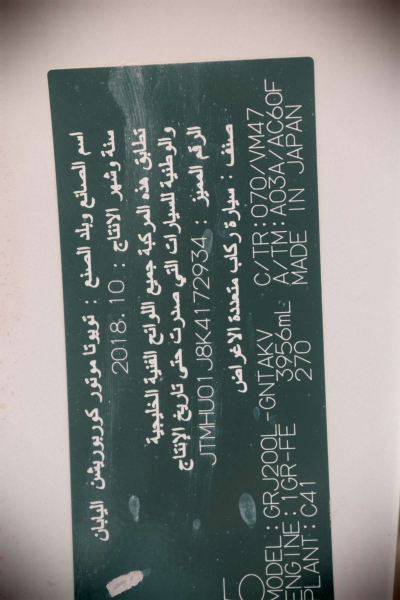 اسم الصانع وبلد الصنع : تويوتا موتور كوربوريشن اليابان
سنة وشهر الانتاج : 2018.10
تطابق هذه المركبة جميع اللوائح الفنية الخليجية
والوطنية للسيارات التي صدرت حتى تاريخ الإنتاج
الرقم المميز : JTMHU01J8K4172934
صنف : سيارة ركاب متعددة الاغراض
MODEL: GRJ200L-GNTAKV C/TR: 070/VM47
ENGINE: 1GR-FE 3956mL A/TM: A03A/AC60F
PLANT: C41 270 MADE IN JAPAN